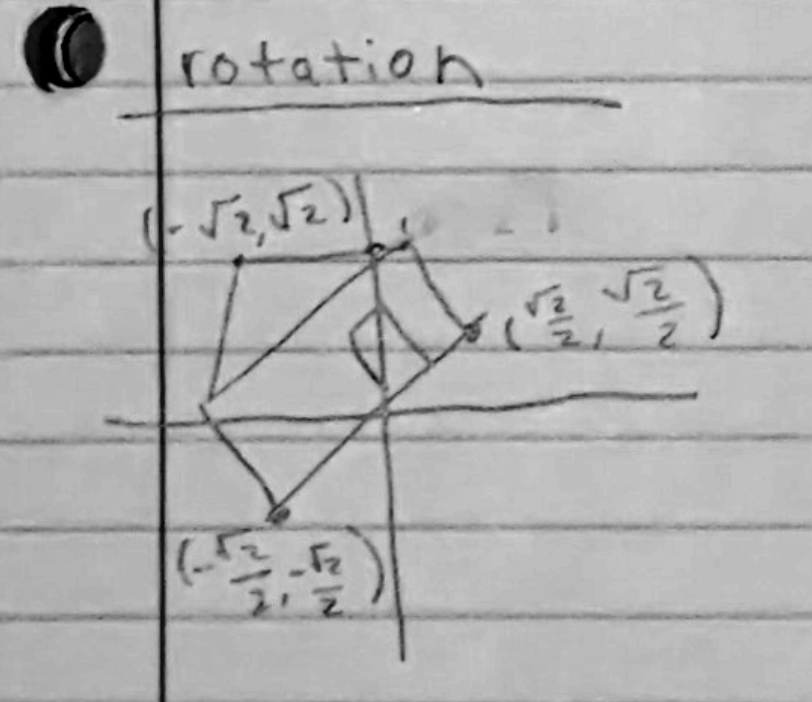 rotation
(-√2, √2)
(√2/2, √2/2)
(-√2/2, -√2/2)